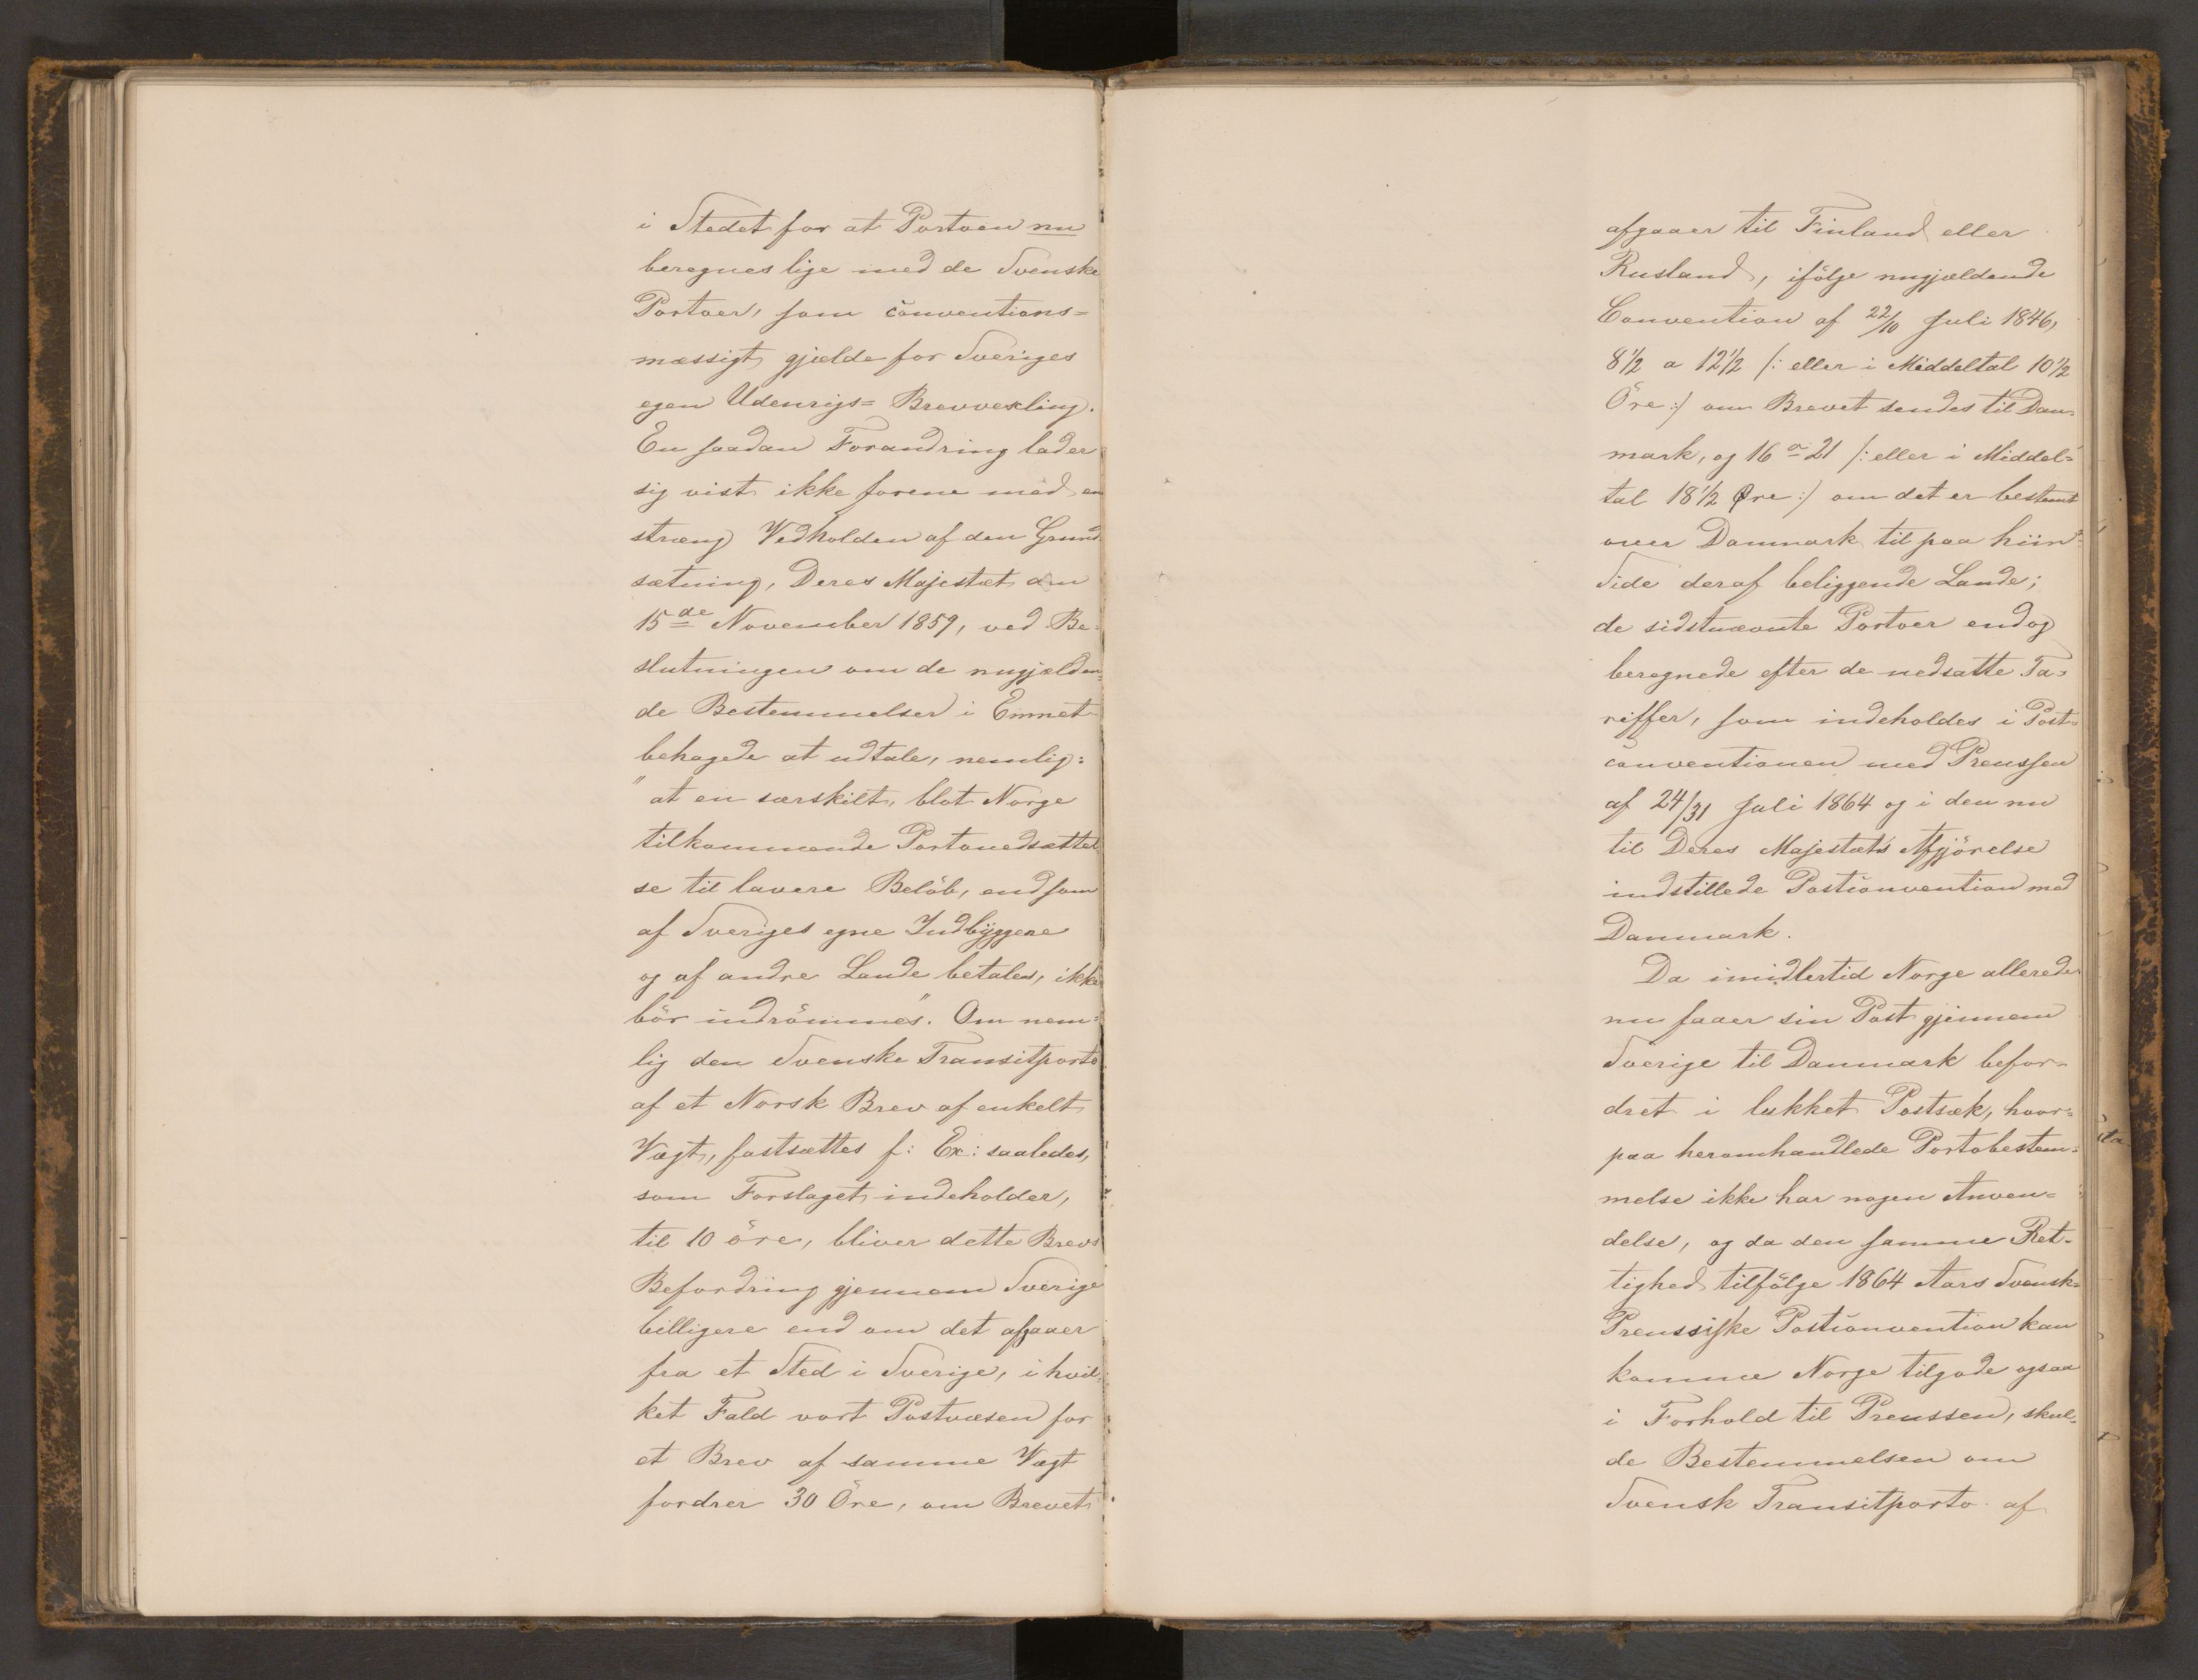 i Stedet for at Portoen nu
beregnes lige med de Svenske
Portoer, som conventions=
mæssigt gjælde for Sveriges
egen Udenrigs= Brevvexling.
En saadan Forandring lader
sig vist ikke forene med en
streng Vedholden af den Grund
sætning, Deres Majestæt den
15de November 1859, ved Be=
slutningen om de nugjælden=
de Bestemmelser i Emnet
behagede at udtale, nemlig:
"at en særskilt, blot Norge
tilkommende Portonedsættel
se til lavere Beløb, end som
af Sveriges egne Indbyggere
og af andre Lande betales, ikke
bör indrömmes". Om nem=
lig den Svenske Transitporto
af et Norsk Brev af enkelt
Vægt, fastsættes f: Ex: saaledes,
som Forslaget indeholder,
til 10 öre, bliver dette Brevs
Befordring gjennem Sverige
billigere end om det afgaaer
fra et Sted i Sverige, i hvil=
ket Fald vort Postvæsen for
et Brev af samme Vægt
fordrer 30 Öre, om Brevet
afgaaer til Finland eller
Rusland, ifölge nugjældende
Convention af 22/10 Juli 1846,
8 1/2 a 12 1/2 /: eller i Middeltal 10 1/2
Öre :/ om Brevet sendes til Dan=
mark, og 16 a 21 /: eller i Middel=
tal 18 1/2 Øre :/ om det er bestemt
over Danmark til paa hiin
Side deraf beliggende Lande;
de sidstnævnte Portoer endog
beregnede efter de nedsatte Ta=
riffer, som indeholdes i Post=
conventionen med Preussen
af 24/31 Juli 1864 og i den nu
til Deres Majestæts Afgjörelse
indstillede Postconvention med
Danmark.
Da imidlertid Norge allerede
nu faaer sin Post gjennem
Sverige til Danmark befor=
dret i lukket Postsæk, hvor=
paa heromhandlede Portobestem=
melse ikke har nogen Anven=
delse, og da den samme Ret=
tighed tilfölge 1864 Aars Svensk=
Preussiske Postconvention kan
komme Norge tilgode ogsaa
i Forhold til Preussen, skul=
de Bestemmelsen om
Svensk Transitporto af